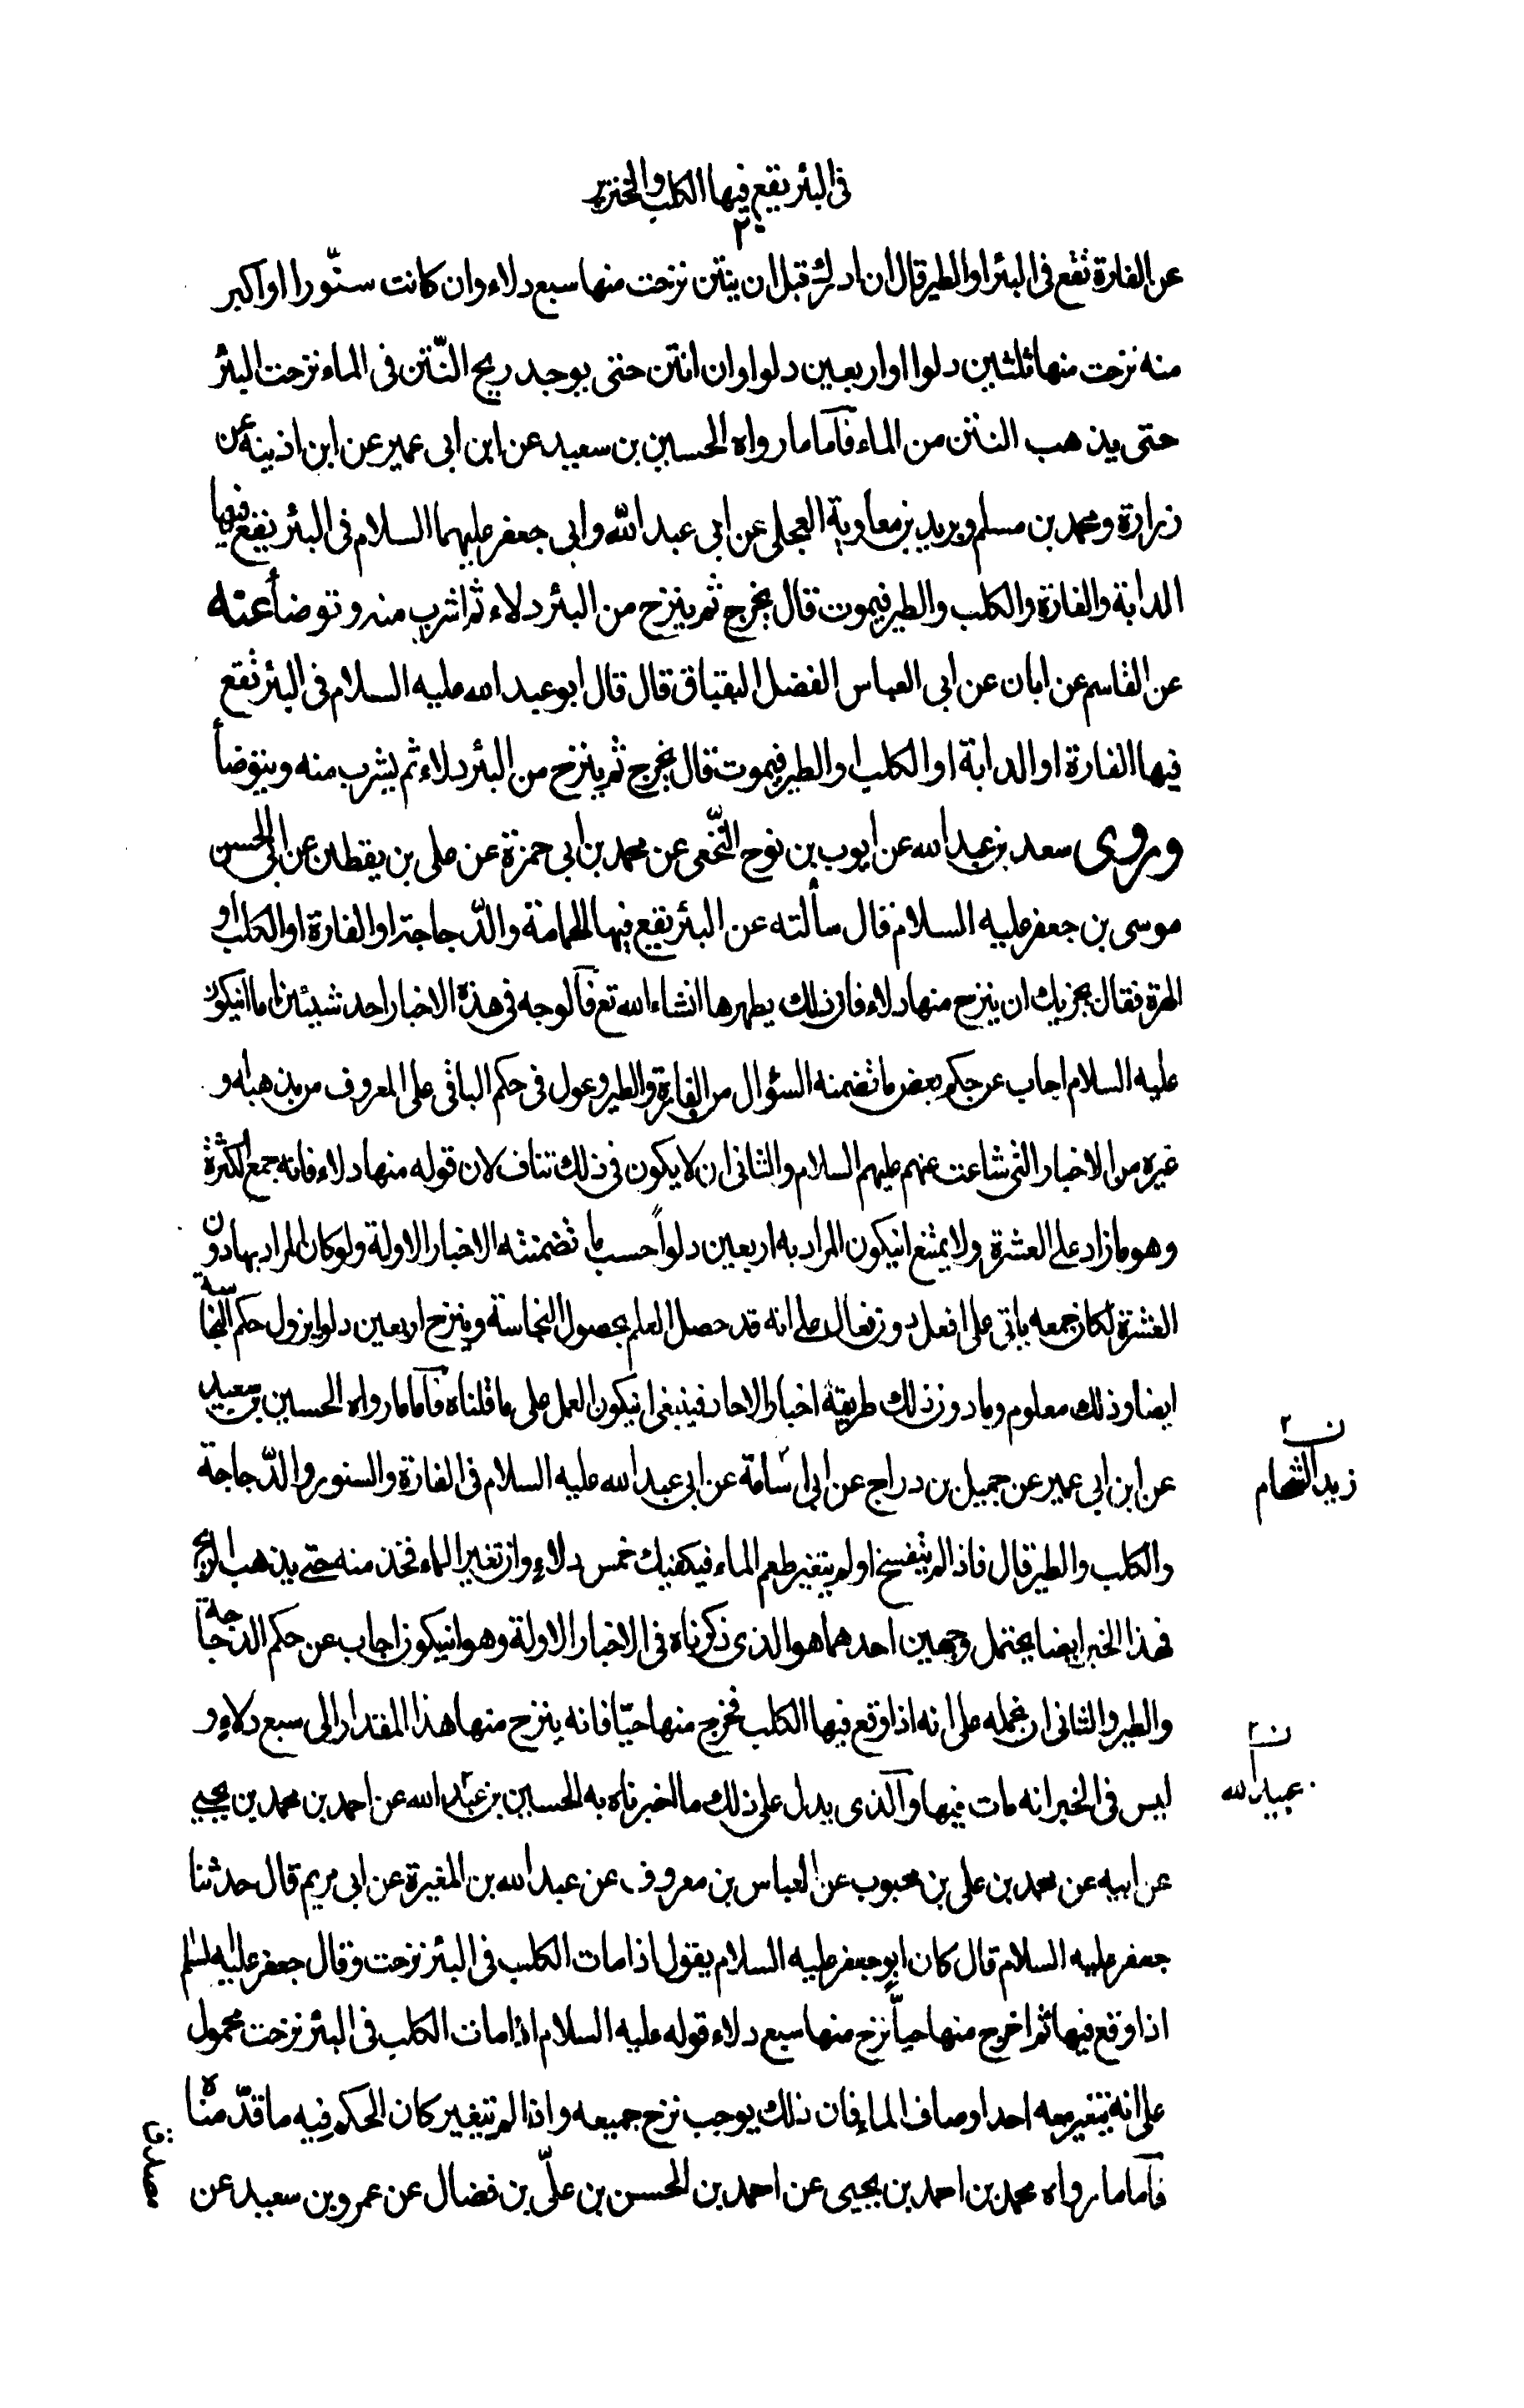 فى البئر يقع فيها الكلب والخنزير
٢٠
عن الفارة تقع فى البئر او الطير قال ان ادركته قبل ان ينتن نزحت منها سبع دلاء وان كانت سنّورا او اكبر
منه نزحت منها ثلثين دلوا او اربعين دلوا وان انتن حتى يوجد ريح النّتن فى الماء نزحت البئر
حتى يذهب النتن من الماء فآما ما رواه الحسين بن سعيد عن ابن ابى عمير عن ابن اذينة عن
زرارة ومحمد بن مسلم وبريد بن معاوية العجلى عن ابى عبد الله وابى جعفر عليهما السلام فى البئر يقع فيها
الدابة والفارة والكلب والطير فيموت قال يخرج ثم ينزح من البئر دلاء ثم اشرب منه وتوضأ عنه
عن القاسم عن ابان عن ابى العباس الفضل البقباق قال قال ابو عبد الله عليه السلام فى البئر تقع
فيها الفارة او الدابة او الكلب او الطير فيموت قال يخرج ثم ينزح من البئر دلاء ثم يشرب منه ويتوضأ
وروى سعد بن عبد الله عن ايوب بن نوح النّخعى عن محمد بن ابى حمزة عن على بن يقطين عن ابى الحسن
موسى بن جعفر عليه السلام قال سألته عن البئر تقع فيها الحمامة والدّجاجة او الفارة او الكلب او
الهرة فقال يجزيك ان ينزح منها دلاء فان ذلك يطهرها انشاء الله تع فآلوجه فى هذه الاخبار احد شيئين اما انيكون
عليه السلام اجاب عن حكم بعض ما تضمنه السؤال من الفارة والطير وعول فى حكم الباقى على المعروف من مذهبه او
غيره من الاخبار التى شاعت عنهم عليهم السلام والثانى ان لا يكون فى ذلك تناف لان قوله منها دلاء فانه جمع الكثرة
وهو ما زاد على العشرة ولا يمتنع انيكون المراد به اربعين دلواً حسب ما تضمنته الاخبار الاولة ولو كان المراد بها دون
العشرة لكان جمعه ياتى على افعل دون فعال على انه قد حصل العلم بحصول النجاسة وبنزح اربعين دلوا يزول حكم النّجاسة
ايضا وذلك معلوم وما دون ذلك طريقة اخبار الاحاد فينبغى انيكون العمل على ما قلناه فآما ما رواه الحسين بن سعيد
عن ابن ابى عمير عن جميل بن دراج عن ابى اسامة عن ابى عبد الله عليه السلام فى الفارة والسنور والدّجاجة
زيد الشحام
والكلب والطير قال فاذا لم يتفسخ او لم يتغير طعم الماء فيكفيك خمس دلاء وان تغير الماء فخذ منه حتى يذهب الريح
فهذا الخبر ايضا يحتمل وجهين احدهما هو الذى ذكرناه فى الاخبار الاولة وهو انيكون اجاب عن حكم الدجاجة
والطير والثانى ان نحمله على انه اذا وقع فيها الكلب فخرج منها حيّا فانه ينزح منها هذا المقدار الى سبع دلاء و
ليس فى الخبر انه مات فيها وآلذى يدل على ذلك ما اخبرناه به الحسين بن عبد الله عن احمد بن محمد بن يحيى
عبيد الله
عن ابيه عن محمد بن على بن محبوب عن العباس بن معروف عن عبد الله بن المغيرة عن ابى مريم قال حدثنا
جعفر عليه السلام قال كان ابو جعفر عليه السلام يقول اذا مات الكلب فى البئر نزحت وقال جعفر عليه السلم
اذا وقع فيها ثم اخرج منها حياً نزح منها سبع دلاء قوله عليه السلام اذا مات الكلب فى البئر نزحت محمول
على انه تتغير معه احد اوصاف الماء فان ذلك يوجب نزح جميعه واذا لم تتغير كان الحكم فيه ما قدّمناه
فآما ما رواه محمد بن احمد بن يحيى عن احمد بن الحسن بن علىّ بن فضال عن عمرو بن سعيد عن